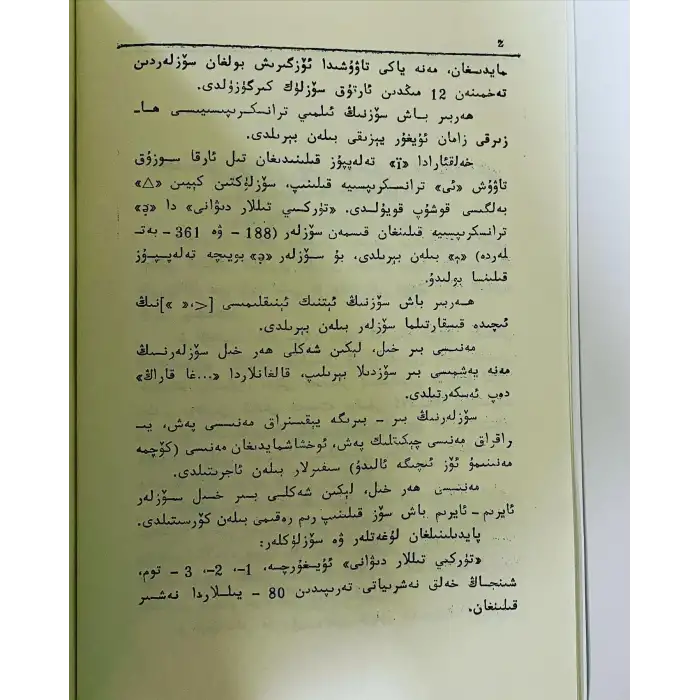 2
مايدىغان، مەنە ياكى تاۋۇشىدا ئۆزگىرىش بولغان سۆزلەردىن
تەخمىنەن 12 مىڭدىن ئارتۇق سۆزلۈك كىرگۈزۈلدى.
ھەربىر بــاش سۆزنىڭ ئىلمىي ترانسكرىپسىيىسى ھــا-
زىرقى زامان ئۇيغۇر يېزىقى بىلەن بېرىلدى.
خەلقئارادا «ï» تەلەپپۇز قىلىنىدىغان تىل ئارقا ســوزۇق
تاۋۇش «ئى» ترانسكرىپسىيە قىلىنىپ، سۆزلۈكتىن كېيىن «△»
بەلگىسى قوشۇپ قويۇلدى. «تۈركىي تىللار دىۋانى» دا «ə»
ترانسكرىپسىيە قىلىنغان قىسمەن سۆزلەر (188 – ۋە 361 – بەتـ
لەردە) بىلەن بېرىلدى، بۇ ســۆزلەر «ə» بويىچە تەلەپـپـۇز
قىلىنسا بولىدۇ.
ھــەربىر باش سۆزنىڭ ئېتنىك ئېنىقلىمىسى [<،« »]نىڭ
ئىچىدە قىسقارتىلما سۆزلەر بىلەن بېرىلدى.
مەنىسى بىر خىل، لېكىن شەكلى ھەر خىل سۆزلەرنىڭ
مەنە يېشىمىسى بىر سۆزدىلا بېرىلىپ، قالغانلاردا «...غا قاراڭ»
دەپ ئەسكەرتىلدى.
سۆزلەرنىڭ بىر – بىرىگە يېقىنراق مەنىسى پەش، يــى
راقراق مەنىسى چېكىتلىك پەش، ئوخشاشمايدىغان مەنىسى (كۆچمە
مەنىنىمۇ ئۆز ئىچىگە ئالىدۇ) سىفىرلار بىلەن ئاجرىتىلدى.
مەنىسى ھەر خىل، لېكىن شەكلــى بىــر خىــل ســۆزلەر
ئايرىم – ئايرىم باش سۆز قىلىنىپ رىم رەقىمى بىلەن كۆرسىتىلدى.
پايدىلىنىلغان لۇغەتلەر ۋە سۆزلۈكلەر:
«تۈركىي تىللار دىۋانى» ئۇيــغۇرچــە، 1-، 2-، 3 – توم،
شىنجاڭ خەلق نەشرىياتى تەرىپىدىن 80 – يىــلــلاردا نەشىر
قىلىنغان.